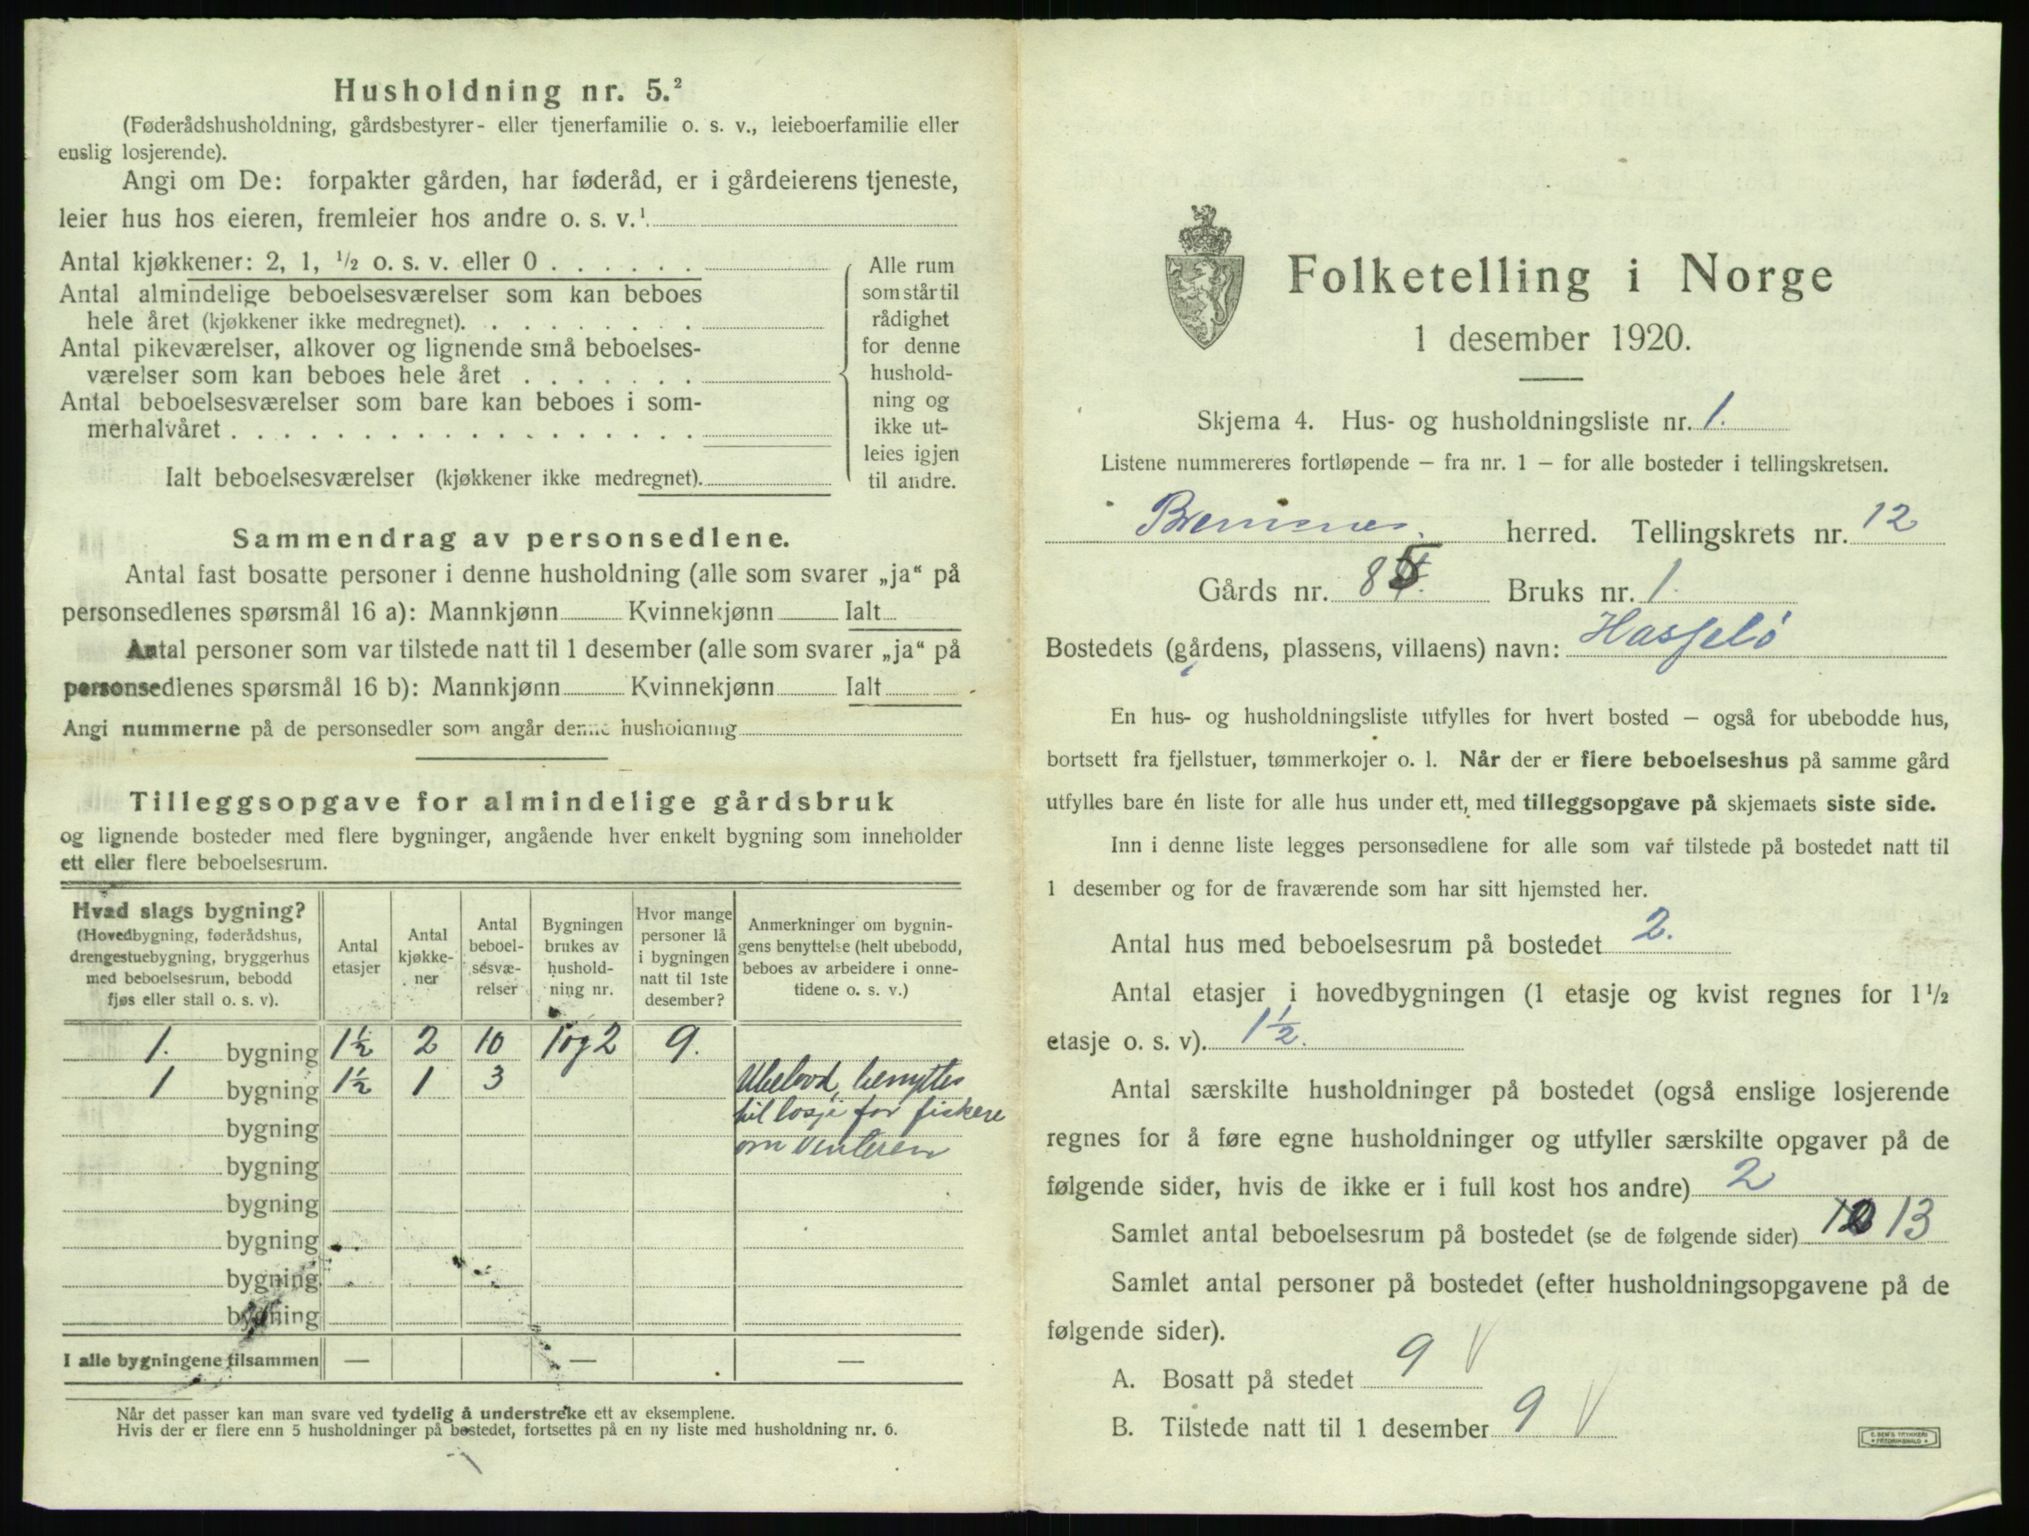 Husholdning nr. 5.²
(Føderådshusholdning, gårdsbestyrer- eller tjenerfamilie o. s. v., leieboerfamilie eller
enslig losjerende).
Angi om De: forpakter gården, har føderåd, er i gårdeierens tjeneste,
leier hus hos eieren, fremleier hos andre o. s. v.¹
Antal kjøkkener: 2, 1, ½ o. s. v. eller 0
Antal almindelige beboelsesværelser som kan beboes
hele året (kjøkkener ikke medregnet).
Antal pikeværelser, alkover og lignende små beboelses-
værelser som kan beboes hele året
Antal beboelsesværelser som bare kan beboes i som-
merhalvåret
Ialt beboelsesværelser (kjøkkener ikke medregnet).
Alle rum
som står til
rådighet
for denne
hushold-
ning og
ikke ut-
leies igjen
til andre.
Sammendrag av personsedlene.
Antal fast bosatte personer i denne husholdning (alle som svarer „ja“ på
personsedlenes spørsmål 16 a): Mannkjønn Kvinnekjønn Ialt
Antal personer som var tilstede natt til 1 desember (alle som svarer „ja“ på
personsedlenes spørsmål 16 b): Mannkjønn Kvinnekjønn Ialt
Angi nummerne på de personsedler som angår denne husholdning
Tilleggsopgave for almindelige gårdsbruk
og lignende bosteder med flere bygninger, angående hver enkelt bygning som inneholder
ett eller flere beboelsesrum.
Hvad slags bygning?
(Hovedbygning, føderådshus,
drengestuebygning, bryggerhus
med beboelsesrum, bebodd
fjøs eller stall o. s. v).
Antal
etasjer
Antal
kjøkke-
ner
Antal
beboel-
sesvæ-
relser
Bygningen
brukes av
hushold-
ning nr.
Hvor mange
personer lå
i bygningen
natt til 1ste
desember?
Anmerkninger om bygnin-
gens benyttelse (helt ubebodd,
beboes av arbeidere i onne-
tidene o. s. v.)
1. bygning 1½ 2 10 1 og 2 9.
1 bygning 1½ 1 3 Ubebod, benyttes
bygning til losje for fiskere
bygning om vinteren
bygning
bygning
bygning
bygning
I alle bygningene tilsammen — — —
Når det passer kan man svare ved tydelig å understreke ett av eksemplene.
Hvis der er flere enn 5 husholdninger på bostedet, fortsettes på en ny liste med husholdning nr. 6.
Folketelling i Norge
1 desember 1920.
Skjema 4. Hus- og husholdningsliste nr. 1.
Listene nummereres fortløpende — fra nr. 1 — for alle bosteder i tellingskretsen.
Bremsnes herred. Tellingskrets nr. 12
Gårds nr. 85 Bruks nr. 1.
Bostedets (gårdens, plassens, villaens) navn: Hasselö
En hus- og husholdningsliste utfylles for hvert bosted — også for ubebodde hus,
bortsett fra fjellstuer, tømmerkojer o. l. Når der er flere beboelseshus på samme gård
utfylles bare én liste for alle hus under ett, med tilleggsopgave på skjemaets siste side.
Inn i denne liste legges personsedlene for alle som var tilstede på bostedet natt til
1 desember og for de fraværende som har sitt hjemsted her.
Antal hus med beboelsesrum på bostedet 2.
Antal etasjer i hovedbygningen (1 etasje og kvist regnes for 1½
etasje o. s. v). 1½.
Antal særskilte husholdninger på bostedet (også enslige losjerende
regnes for å føre egne husholdninger og utfyller særskilte opgaver på de
følgende sider, hvis de ikke er i full kost hos andre) 2
Samlet antal beboelsesrum på bostedet (se de følgende sider) 13
Samlet antal personer på bostedet (efter husholdningsopgavene på de
følgende sider).
A. Bosatt på stedet 9 V
B. Tilstede natt til 1 desember 9 V